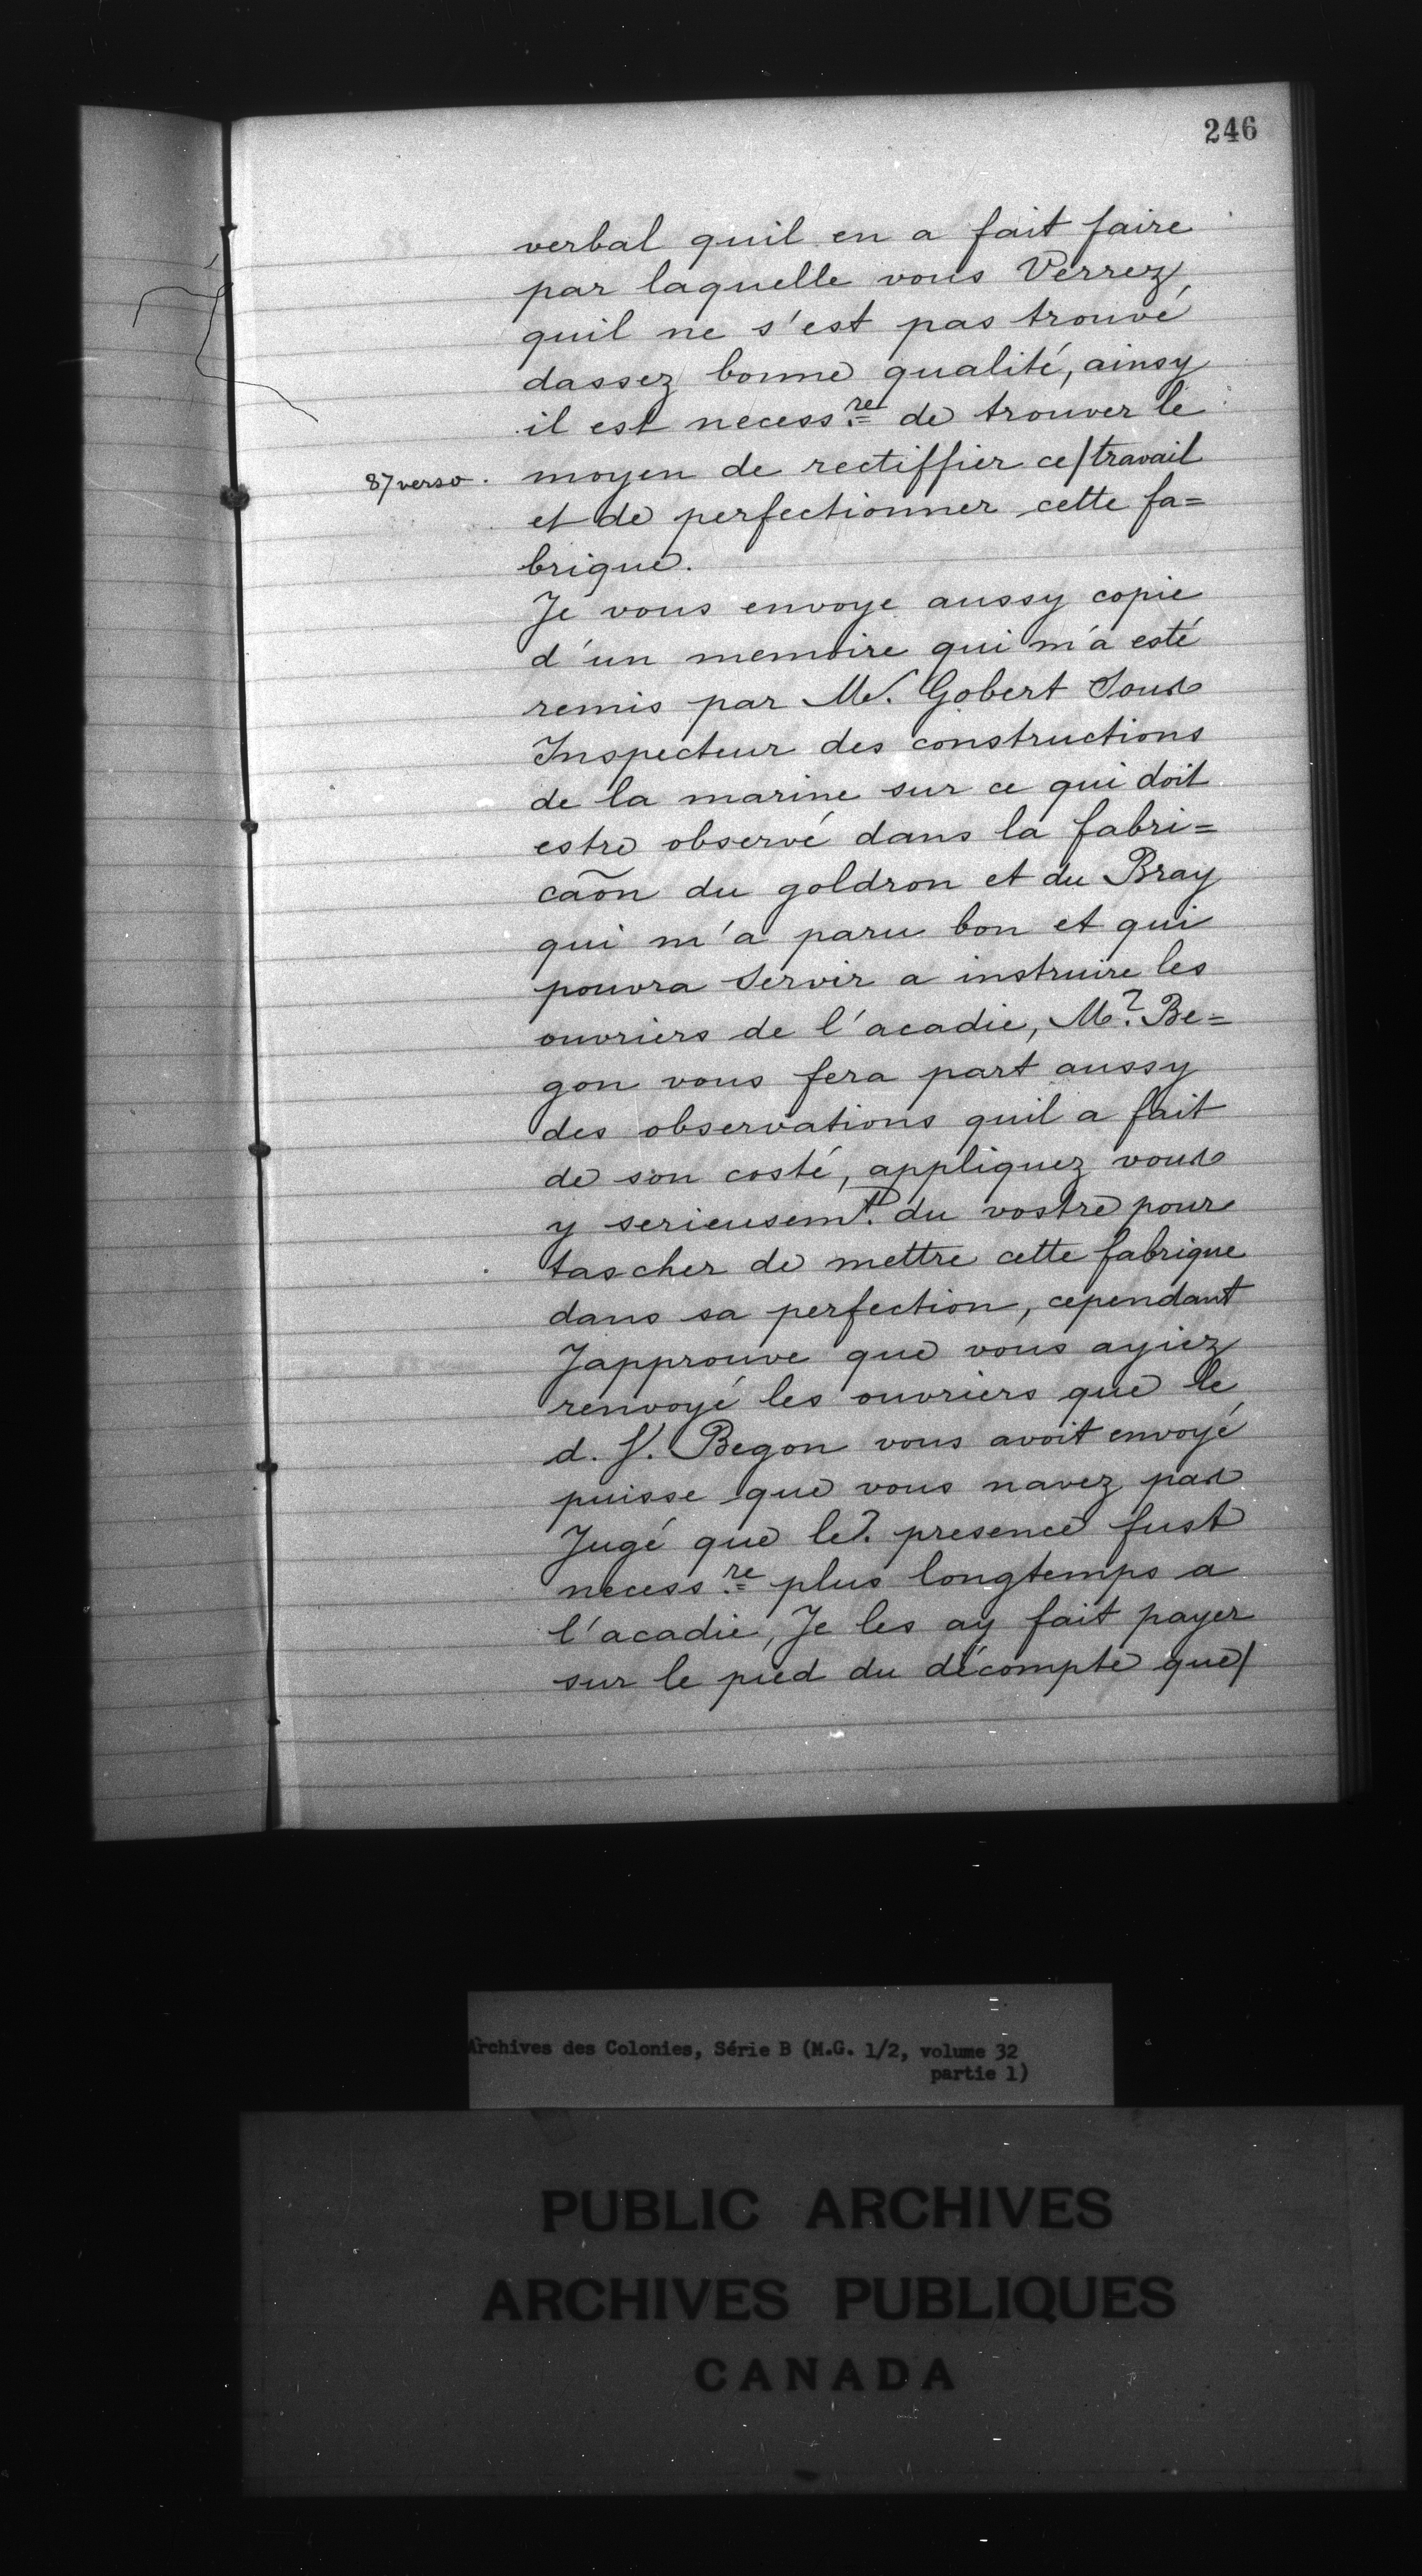 246
verbal quil en a fait faire
par laquelle vous Verrez
quil ne s'est pas trouvé
dassez bonne qualité, ainsy
il est necess.re de trouver le
87 verso. moyen de rectiffier ce/travail
et de perfectionner cette fa=
brique.
Je vous envoye aussy copie
d'un memoire qui m'a esté
remis par Mr. Gobert Sous
Inspecteur des constructions
de la marine sur ce qui doit
estre observé dans la fabri=
caõn du goldron et du Bray
qui m'a paru bon et qui
pouvra servir a instruire les
ouvriers de l'acadie, Mr. Be=
gon vous fera part aussy
des observations quil a fait
de son costé, appliquez vous
y serieusemt. du vostre pour
tascher de mettre cette fabrique
dans sa perfection, cependant
Japprouve que vous ayiez
renvoyé les ouvriers que le
d. S. Begon vous avoit envoyé
puisse que vous navez pas
Jugé que ler. presence fust
necess.re plus longtemps a
l'acadie, Je les ay fait payer
sur le pied du décompte que/
Archives des Colonies, Série B (M.G. 1/2, volume 32
partie 1)
PUBLIC ARCHIVES
ARCHIVES PUBLIQUES
CANADA